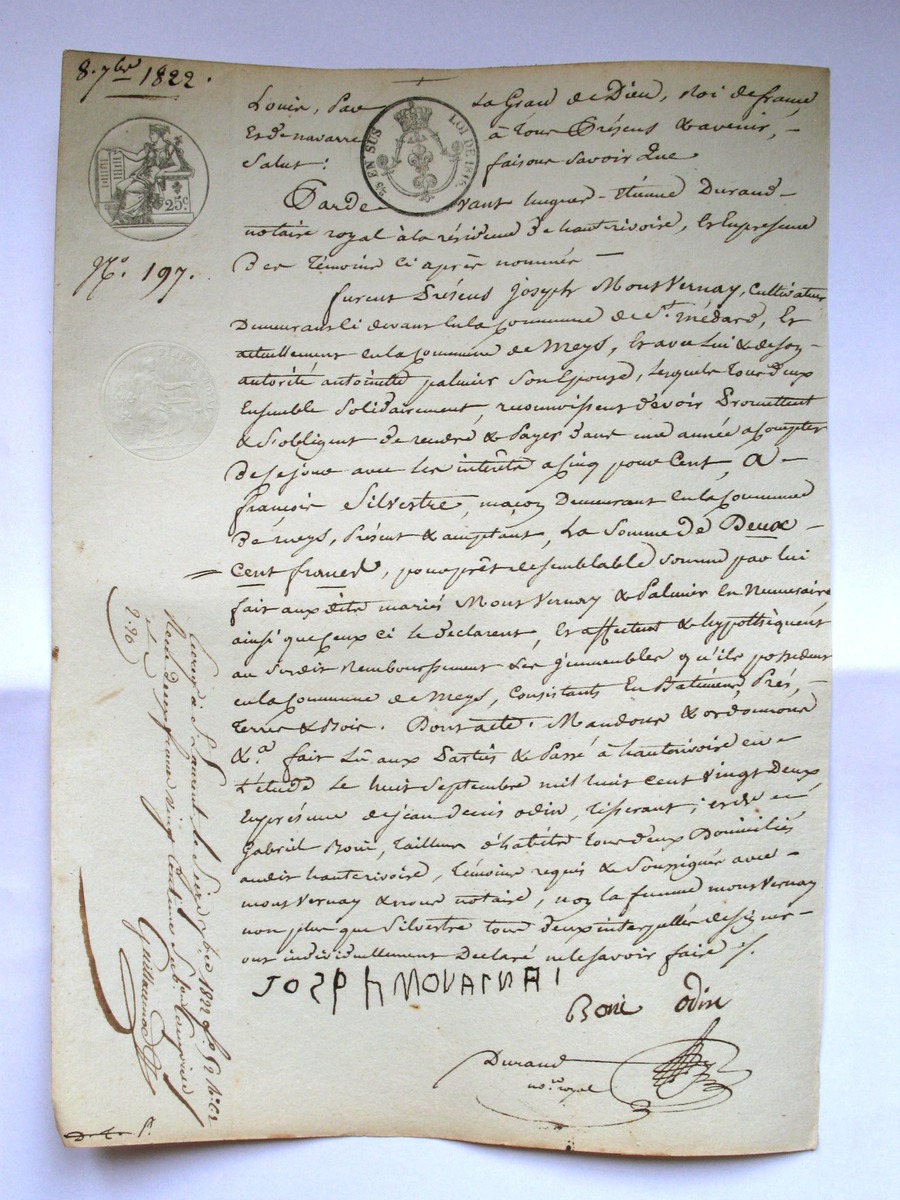 8. 7bre 1822.
Louis, Par La Grace de Dieu, Roi de france
Et de navarre à tous Présens & avenir,
Salut: faisons Savoir Que
25 EN SUS LOI DE 1816
25c
Par devant Durand
notaire royal à la résidence de hauterivoire, Et En presence
Des témoins ci après nommés
No. 197.
furent Présens Joseph MontVernay, Cultivateur
Demeurant ci devant En la Commune de St. médard, Et
actuellement en la Commune de Meys, Et avec Lui & de son
autorité antoinette palmier Son Epouse, Lesquels tous deux
Ensemble Solidairement, reconnoissent devoir Promettent
& S'obligent de rendre & Payer dans une année a Compter
De Ce jour avec Les intérêts a Cinq pour Cent, A
françois Silvestre, maçon Demeurant En la Commune
De meys, Présent & acceptant, La Somme de Deux
Cent francs, pour prêt de semblable somme par lui
fait aux dits mariés MontVernay & Palmier En Numeraire
ainsi que Ceux ci le déclarent, Et affectent & hypothèquent
au Susdit Remboursement Les immeubles qu'ils possèdent
en la Commune de Meys, Consistants En Batiment, Prés,
Terres & Bois. Dont acte. Mandons & ordonnons
&a. fait Lû aux Parties & Passé à hauterivoire en
L'étude Le huit Septembre mil huit Cent Vingt Deux
En présence de jean Denis odin, tisserant,
Gabriel Boni, Tailleur d'habits tous deux Domiciliés
audit hauterivoire, Témoins requis & Soussignés avec
montVernay & nous notaire, non la femme montVernay
non plus que Silvestre tous deux interpellés de signer
ont individuellement Déclaré ne le savoir faire /.
JOSPH MOVARNAI
Boni odin
Durand
nore royal
Enregé à St Laurent le Sept 7bre 1822 fo. 52
Reçu deux francs vingt Centimes
2.20
Guillaumot